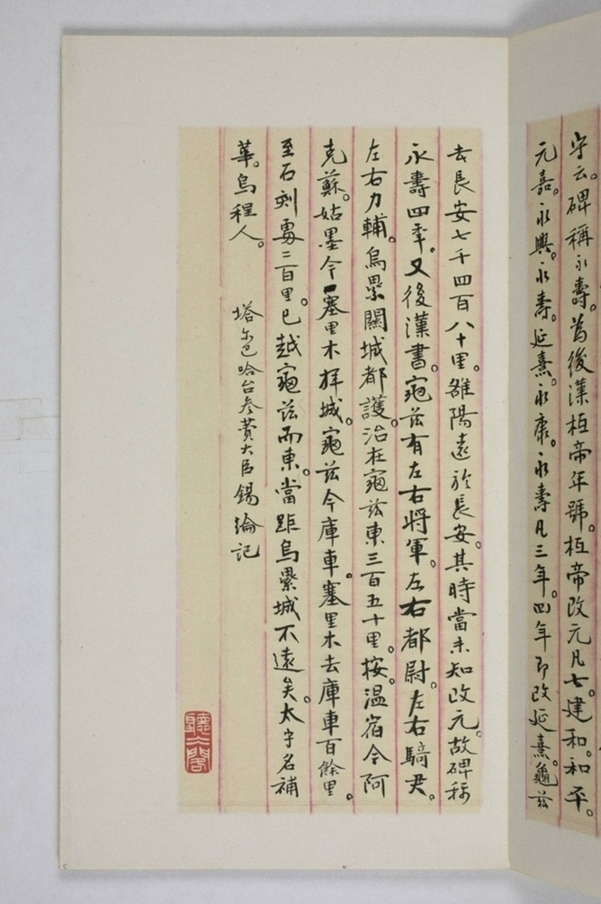 守云。碑稱永壽。為後漢桓帝年號。桓帝改元凡七。建和。和平。
元嘉。永興。永壽。延熹。永康。永壽凡三年。四年即改延熹。龜茲
去長安七千四百八十里。雒陽遠於長安。其時當未知改元。故碑稱
永壽四年。又後漢書。龜茲有左右將軍。左右都尉。左右騎君。
左右力輔。烏壘關城都護。治在龜茲東三百五十里。按。溫宿今阿
克蘇。姑墨今塞里木拜城。龜茲今庫車。塞里木去庫車百餘里。
至石刻處二百里。已越龜茲而東。當距烏壘城不遠矣。太守名補
華。烏程人。
塔尔巴哈台參贊大臣錫綸記
聽㕕閣